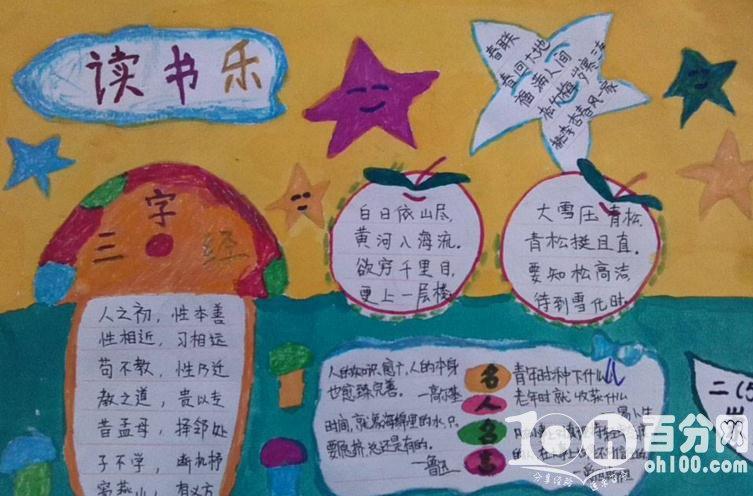 读书乐
春联
春回大地
福满人间
三字经
人之初，性本善
性相近，习相远
苟不教，性乃迁
教之道，贵以专
昔孟母，择邻处
子不学，断机杼
窦燕山，有义方
白日依山尽，
黄河入海流。
欲穷千里目，
更上一层楼
大雪压青松，
青松挺且直。
要知松高洁，
待到雪化时。
名人名言
人的知识愈广，人的本身
也愈臻完善。—高尔基
时间，就象海绵里的水，只
要愿挤，总还是有的。
—鲁迅
青年时种下什么
老年时就收获什么
二(5
百分网
oh100.com